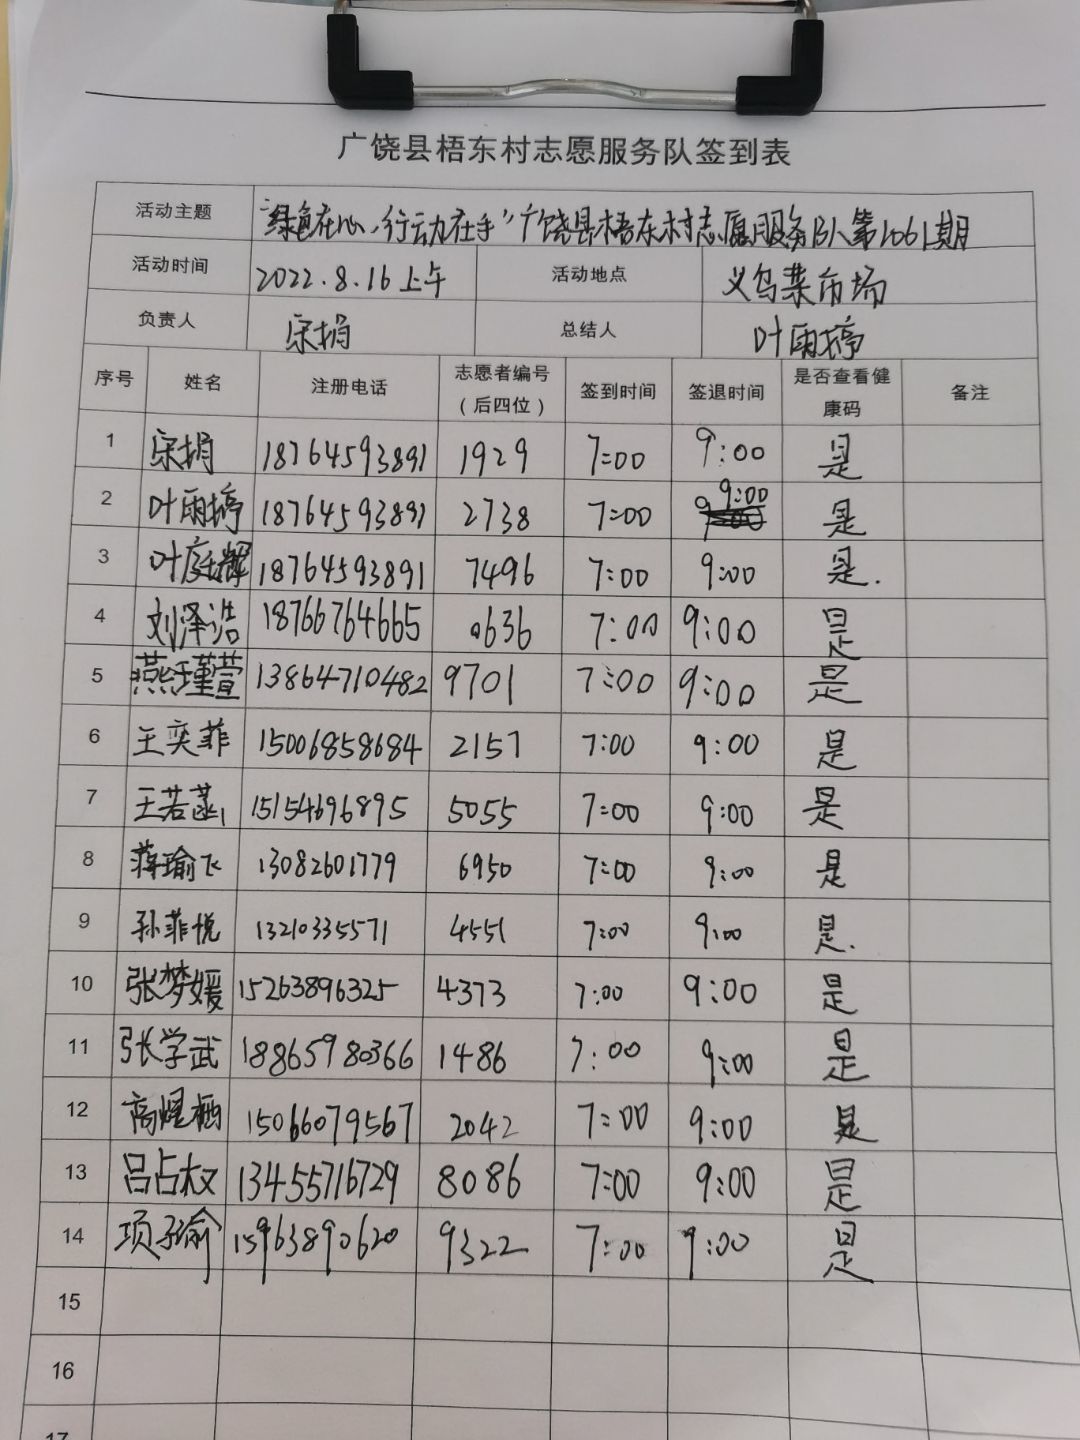 广饶县梧东村志愿服务队签到表
活动主题 “绿色在心,行动在手”广饶县梧东村志愿服务队第1061期
活动时间 2022.8.16上午 活动地点 义乌菜市场
负责人 宋捐 总结人 叶雨婷
序号 姓名 注册电话 志愿者编号（后四位） 签到时间 签退时间 是否查看健康码 备注
1 宋捐 18764593891 1929 7:00 9:00 是
2 叶雨婷 18764593891 2738 7:00 9:00 是
3 叶庭辉 18764593891 7496 7:00 9:00 是.
4 刘泽浩 18766764665 0636 7:00 9:00 是
5 燕瑾萱 13864710482 9701 7:00 9:00 是
6 王奕菲 15006858684 2157 7:00 9:00 是
7 王若菡 15154696895 5055 7:00 9:00 是
8 蒋瑜飞 13082601779 6950 7:00 9:00 是
9 孙菲悦 13210335571 4551 7:00 9:00 是.
10 张梦媛 15263896325 4373 7:00 9:00 是
11 张学武 18865980366 1486 7:00 9:00 是
12 15066079567 2042 7:00 9:00 是
13 吕占权 13455716729 8086 7:00 9:00 是
14 项子瑜 15963890620 9322 7:00 9:00 是
15
16
17